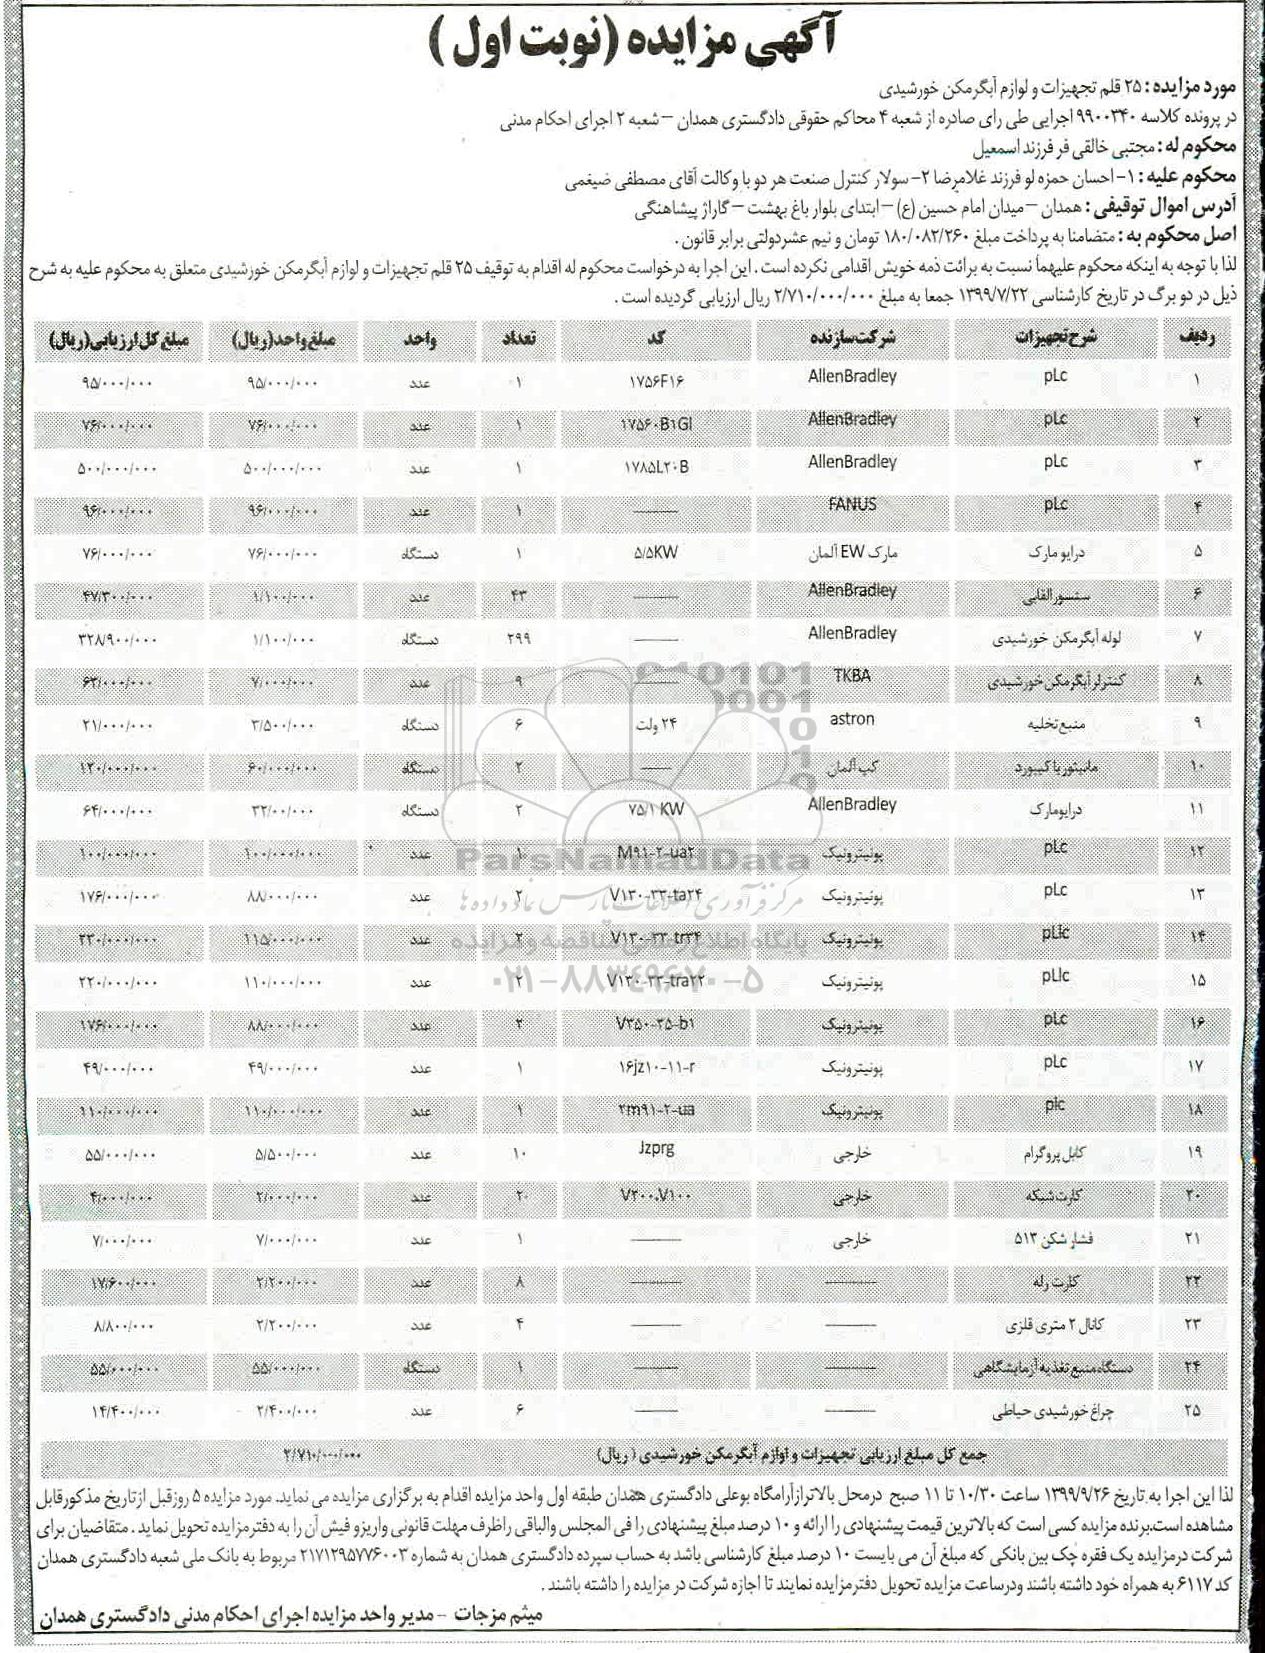 آگهی مزایده (نوبت اول)
مورد مزایده : ۲۵ قلم تجهیزات و لوازم آبگرمکن خورشیدی
در پرونده کلاسه ۹۹۰۰۳۴۰ اجرایی طی رای صادره از شعبه ۴ محاکم حقوقی دادگستری همدان – شعبه ۲ اجرای احکام مدنی
محکوم له : مجتبی خالقی فر فرزند اسمعیل
محکوم علیه : ۱- احسان حمزه لو فرزند غلامرضا ۲- سولار کنترل صنعت هر دو با وکالت آقای مصطفی ضیغمی
آدرس اموال توقیفی : همدان – میدان امام حسین (ع) – ابتدای بلوار باغ بهشت – گاراژ پیشاهنگی
اصل محکوم به : متضامنا به پرداخت مبلغ ۱۸۰/۰۸۲/۲۶۰ تومان و نیم عشردولتی برابر قانون .
لذا با توجه به اینکه محکوم علیهما نسبت به برائت ذمه خویش اقدامی نکرده است . این اجرا به درخواست محکوم له اقدام به توقیف ۲۵ قلم تجهیزات و لوازم آبگرمکن خورشیدی متعلق به محکوم علیه به شرح
ذیل در دو برگ در تاریخ کارشناسی ۱۳۹۹/۷/۲۲ جمعا به مبلغ ۲/۷۱۰/۰۰۰/۰۰۰ ریال ارزیابی گردیده است .
ردیف شرح تجهیزات شرکت سازنده کد تعداد واحد مبلغ واحد(ریال) مبلغ کل ارزیابی(ریال)
۱ pLc AllenBradley ۱۷۵۶F۱۶ ۱ عدد ۹۵/۰۰۰/۰۰۰ ۹۵/۰۰۰/۰۰۰
۲ pLc AllenBradley ۱۷۵۶۰B۱GI ۱ عدد ۷۶/۰۰۰/۰۰۰ ۷۶/۰۰۰/۰۰۰
۳ pLc AllenBradley ۱۷۸۵L۲۰B ۱ عدد ۵۰۰/۰۰۰/۰۰۰ ۵۰۰/۰۰۰/۰۰۰
۴ pLc FANUS —— ۱ عدد ۹۶/۰۰۰/۰۰۰ ۹۶/۰۰۰/۰۰۰
۵ درایو مارک مارک EW آلمان ۵/۵KW ۱ دستگاه ۷۶/۰۰۰/۰۰۰ ۷۶/۰۰۰/۰۰۰
۶ سنسور القایی AllenBradley —— ۴۳ عدد ۱/۱۰۰/۰۰۰ ۴۷/۳۰۰/۰۰۰
۷ لوله آبگرمکن خورشیدی AllenBradley —— ۲۹۹ دستگاه ۱/۱۰۰/۰۰۰ ۳۲۸/۹۰۰/۰۰۰
۸ کنترلر آبگرمکن خورشیدی TKBA —— ۹ عدد ۷/۰۰۰/۰۰۰ ۶۳/۰۰۰/۰۰۰
۹ منبع تخلیه astron ۲۴ ولت ۶ دستگاه ۳/۵۰۰/۰۰۰ ۲۱/۰۰۰/۰۰۰
۱۰ مانیتور با کیبورد کپ آلمان —— ۲ دستگاه ۶۰/۰۰۰/۰۰۰ ۱۲۰/۰۰۰/۰۰۰
۱۱ درایومارک AllenBradley ۷۵/۱ KW ۲ دستگاه ۳۲/۰۰/۰۰۰ ۶۴/۰۰۰/۰۰۰
۱۲ pLc یونیترونیک M۹۱-۲-ua۲ ۱ عدد ۱۰۰/۰۰۰/۰۰۰ ۱۰۰/۰۰۰/۰۰۰
۱۳ pLc یونیترونیک V۱۳۰-۳۳-ta۲۴ ۲ عدد ۸۸/۰۰۰/۰۰۰ ۱۷۶/۰۰۰/۰۰۰
۱۴ pLic یونیترونیک V۱۳۰-۳۳-tr۳۴ ۲ عدد ۱۱۵/۰۰۰/۰۰۰ ۲۳۰/۰۰۰/۰۰۰
۱۵ pLlc یونیترونیک V۱۳۰-۳۳-tra۲۲ ۲ عدد ۱۱۰/۰۰۰/۰۰۰ ۲۲۰/۰۰۰/۰۰۰
۱۶ pLc یونیترونیک V۳۵۰-۳۵-b۱ ۲ عدد ۸۸/۰۰۰/۰۰۰ ۱۷۶/۰۰۰/۰۰۰
۱۷ pLc یونیترونیک ۱۶jz۱۰-۱۱-r ۱ عدد ۴۹/۰۰۰/۰۰۰ ۴۹/۰۰۰/۰۰۰
۱۸ plc یونیترونیک ۲m۹۱-۲-ua ۱ عدد ۱۱۰/۰۰۰/۰۰۰ ۱۱۰/۰۰۰/۰۰۰
۱۹ کابل پروگرام خارجی Jzprg ۱۰ عدد ۵/۵۰۰/۰۰۰ ۵۵/۰۰۰/۰۰۰
۲۰ کارت شبکه خارجی V۲۰۰.V۱۰۰ ۲۰ عدد ۲/۰۰۰/۰۰۰ ۴/۰۰۰/۰۰۰
۲۱ فشار شکن ۵۱۳ خارجی —— ۱ عدد ۷/۰۰۰/۰۰۰ ۷/۰۰۰/۰۰۰
۲۲ کارت رله —— —— ۸ عدد ۲/۲۰۰/۰۰۰ ۱۷/۶۰۰/۰۰۰
۲۳ کانال ۲ متری فلزی —— —— ۴ عدد ۲/۲۰۰/۰۰۰ ۸/۸۰۰/۰۰۰
۲۴ دستگاه منبع تغذیه آزمایشگاهی —— —— ۱ دستگاه ۵۵/۰۰۰/۰۰۰ ۵۵/۰۰۰/۰۰۰
۲۵ چراغ خورشیدی حیاطی —— —— ۶ عدد ۲/۴۰۰/۰۰۰ ۱۴/۴۰۰/۰۰۰
جمع کل مبلغ ارزیابی تجهیزات و لوازم آبگرمکن خورشیدی ( ریال) ۲/۷۱۰/۰۰۰/۰۰۰
لذا این اجرا به تاریخ ۱۳۹۹/۹/۲۶ ساعت ۱۰/۳۰ تا ۱۱ صبح درمحل بالاتر ازآرامگاه بوعلی دادگستری همدان طبقه اول واحد مزایده اقدام به برگزاری مزایده می نماید. مورد مزایده ۵ روز قبل از تاریخ مذکور قابل
مشاهده است.برنده مزایده کسی است که بالاترین قیمت پیشنهادی را ارائه و ۱۰ درصد مبلغ پیشنهادی را فی المجلس والباقی را ظرف مهلت قانونی واریز و فیش آن را به دفتر مزایده تحویل نماید . متقاضیان برای
شرکت در مزایده یک فقره چک بین بانکی که مبلغ آن می بایست ۱۰ درصد مبلغ کارشناسی باشد به حساب سپرده دادگستری همدان به شماره ۲۱۷۱۲۹۵۷۷۶۰۰۳ مربوط به بانک ملی شعبه دادگستری همدان
کد ۶۱۱۷ به همراه خود داشته باشند ودر ساعت مزایده تحویل دفتر مزایده نمایند تا اجازه شرکت در مزایده را داشته باشند .
میثم مزجات - مدیر واحد مزایده اجرای احکام مدنی دادگستری همدان
ParsNamadData
مرکز فرآوری اطلاعات پارس نماد داده ها
پایگاه اطلاع رسانی مناقصه و مزایده
۰۲۱-۸۸۳۴۹۶۷۰-۵